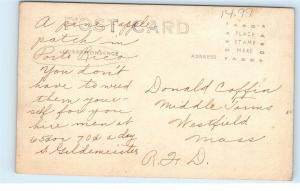 14.99
POST CARD
CORRESPONDENCE
ADDRESS
PLACE
STAMP
HERE
A pine apple
patch in
Porto Rico
You don't
have to weed
them your-
self for you
hire men at
65 or 70¢ a day
S. Guldemeister
Donald Coffin
Middle Farms
Westfield
Mass
R.F.D.